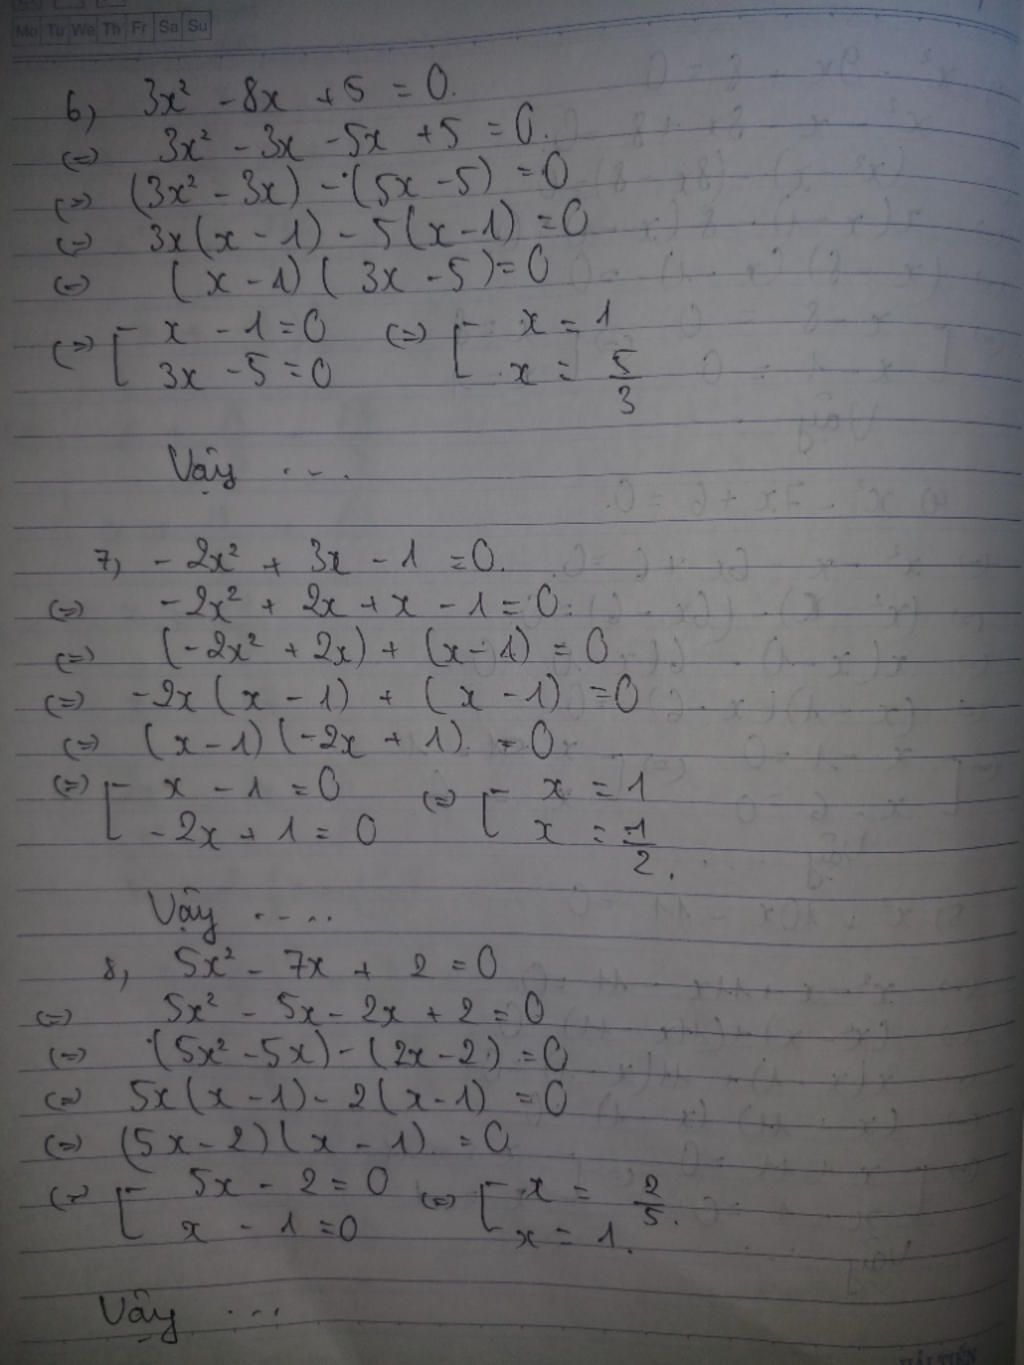 Mo Tu We Th Fr Sa Su
6, 3x² - 8x + 5 = 0.
(=) 3x² - 3x - 5x + 5 = 0.
(=) (3x² - 3x) - (5x - 5) = 0
(=) 3x(x - 1) - 5(x - 1) = 0
(=) (x - 1)(3x - 5) = 0
(=) [ x - 1 = 0 (=) [ x = 1
3x - 5 = 0 x = 5/3
Vậy ....
7, - 2x² + 3x - 1 = 0.
(=) -2x² + 2x + x - 1 = 0.
(=) (-2x² + 2x) + (x - 1) = 0
(=) -2x(x - 1) + (x - 1) = 0
(=) (x - 1)(-2x + 1) = 0
(=) [ x - 1 = 0 (=) [ x = 1
-2x + 1 = 0 x = 1/2.
Vậy .....
8, 5x² - 7x + 2 = 0
(=) 5x² - 5x - 2x + 2 = 0
(=) (5x² - 5x) - (2x - 2) = 0
(=) 5x(x - 1) - 2(x - 1) = 0
(=) (5x - 2)(x - 1) = 0
(=) [ 5x - 2 = 0 (=) [ x = 2/5.
x - 1 = 0 x = 1.
Vậy ...